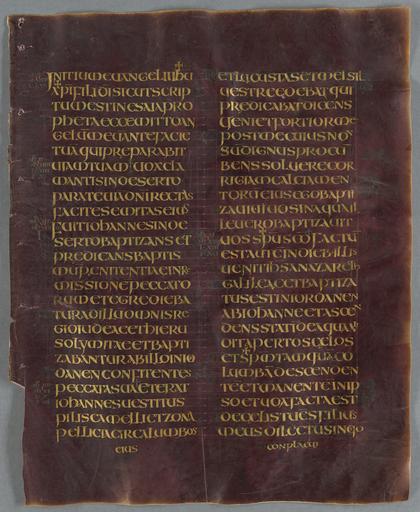 INITIUM EUANGELII IHU
XPI FILI DI SICUT SCRIP
TUM EST IN ESAIA PRO
PHETA ECCE MITTO AN
GELUM MEUM ANTE FACIE
TUA QUI PREPARABIT
UIAM TUAM UOX CLA
MANTIS IN DESERTO
PARATE UIA DNI RECTAS
FACITE SEMITAS EIUS
FUIT IOHANNES IN DE
SERTO BAPTIZANS ET
PREDICANS BAPTIS
MUM PENITENTIAE IN RE
MISSIONE PECCATO
RUM ET EGREDIEBA
TUR AD ILLUM OMNIS RE
GIO IUDEAE ET HIERU
SOLYMITAE ET BAPTI
ZABANTUR AB ILLO IN IOR
DANEN CONFITENTES
PECCATA SUA ET ERAT
IOHANNES UESTITUS
PILIS CAMELI ET ZONA
PELLICIA CIRCA LUMBOS
EIUS
ET LOCUSTAS ET MEL SIL
UESTRE EDEBAT QUI
PREDICABAT DICENS
UENIET FORTIOR ME
POST ME CUIUS NON
SU DIGNUS PROCU
BENS SOLUERE COR
RIGIAM CALCIAMEN
TORU EIUS EGO BAPTI
ZAUI UOS IN AQUA IL
LE UERO BAPTIZAUIT
UOS SPUS FACTU
EST AUTE IN DIEB ILLIS
UENIT IHS A NAZARETH
GALILEAE ET BAPTIZA
TUS EST IN IORDANEN
AB IOHANNE ET ASCEN
DENS STATI AQUA UI
DIT APERTOS CELOS
ET SPM TAMQUA CO
LUMBA DESCENDEN
TE ET MANENTE IN IP
SO ET UOX FACTA EST
DE CELIS TU ES FILIUS
MEUS DILECTUS IN QO
CONPLACUI